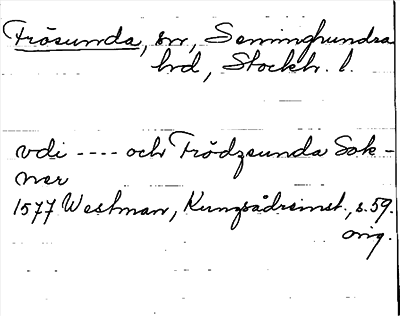 Frösunda, sn, Seminghundra
hd, Stockh. l.
vdi ---- och Frödzsunda Sok-
ner
1577 Westman, Kungsådreinst., s. 59.
orig.